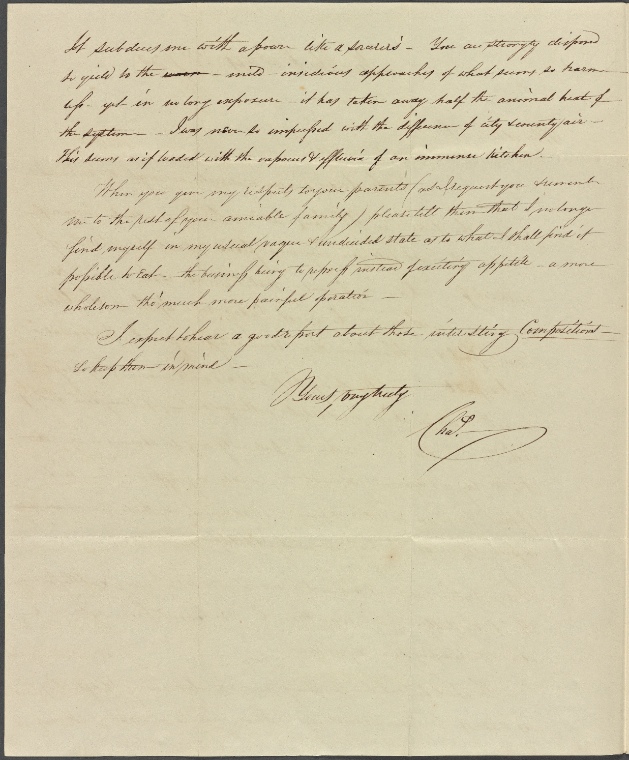 It subdues me with a power like a sorcerer's – You are strongly disposed
to yield to the warm – mild – insidious approaches of what seems so harm-
less – yet in no long exposure – it has taken away half the animal heat of
the system – I was never so impressed with the difference of city & country air –
This seems as if loaded with the vapours & effluvia of an immense kitchen.
When you give my respects to your parents (and I request you remem-
me to the rest of your amiable family) please tell them that I no longer
find myself in my usual vague & undecided state as to what I shall find it
possible to eat – the business being to repress instead of exciting appetite – a more
wholesom tho' much more painful operation –
I expect to hear a good report about those interesting Compositions –
so keep them in mind –
Yours, truly
Chas.